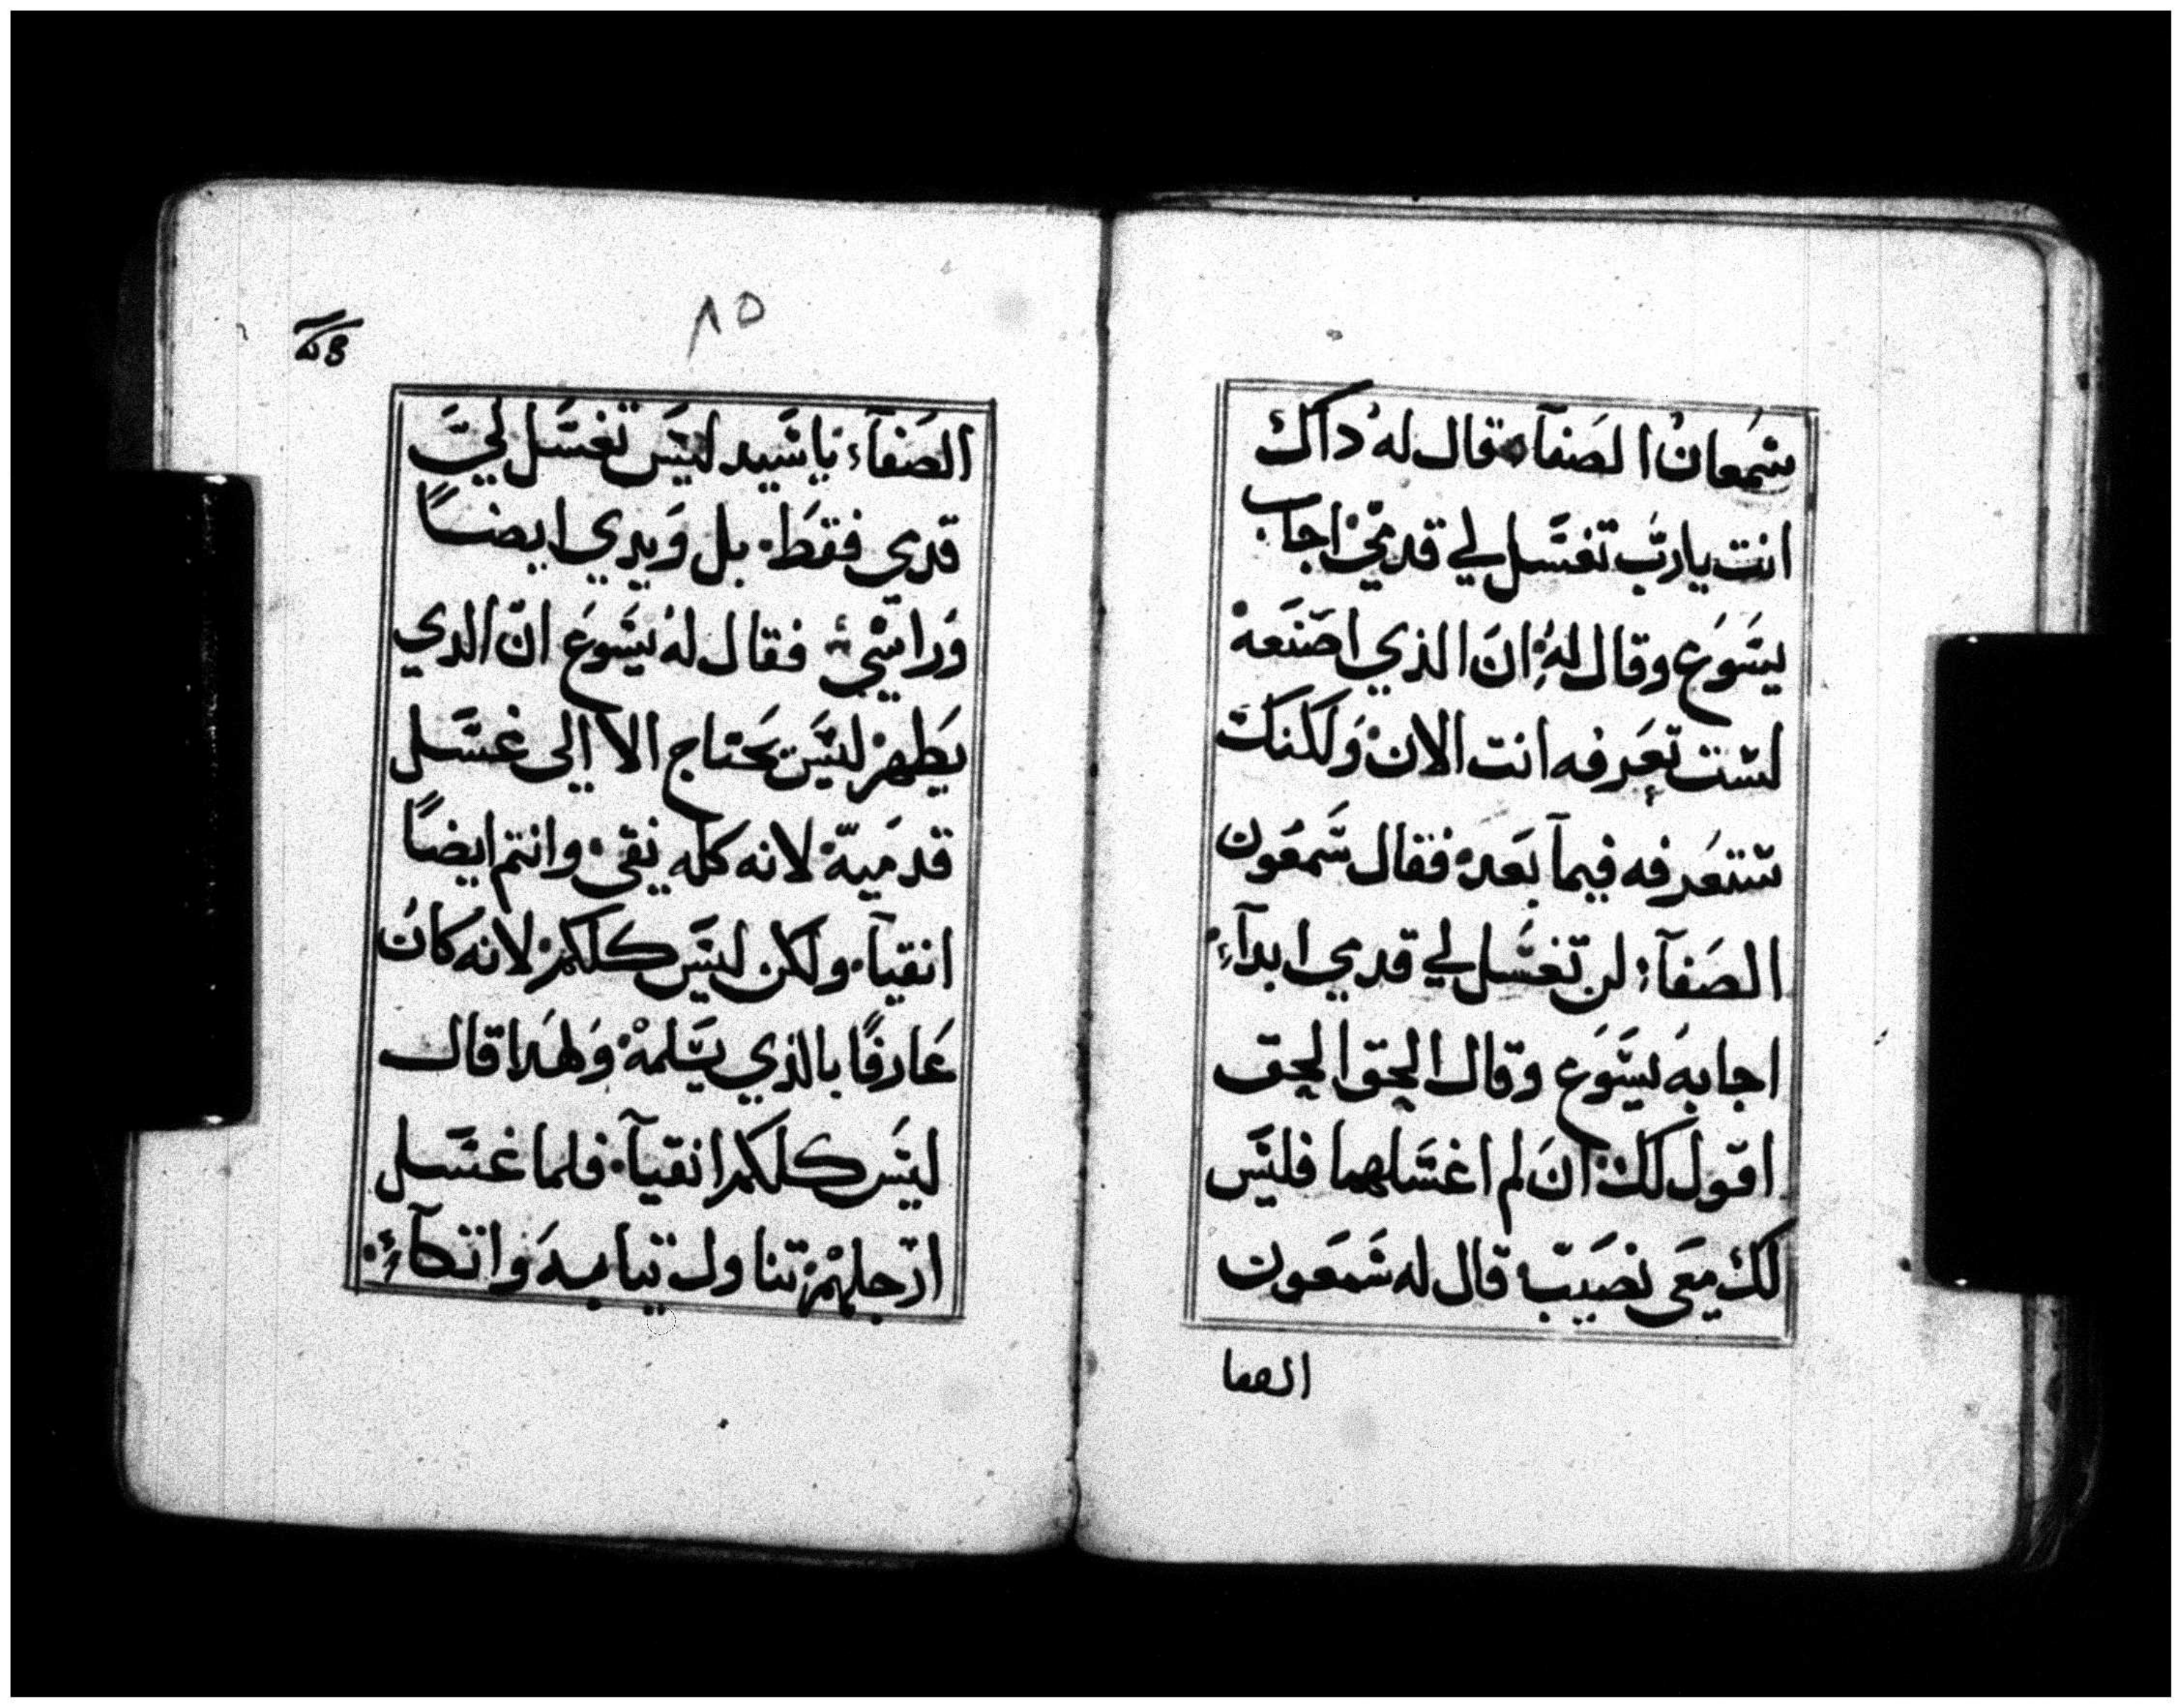 شمعان الصَفآء قال له داك
انت يارب تغسَل لي قدمَيَّ اجاب
يسَوَع وقال لهُ انَ الذي اصَنعَه
لسَت تعَرفه انت الان وَلكنك
سَتعَرفه فيمآ بَعده فقال سَمعَون
الصَفآء لن تغسَل لي قدمي ابدآء
اجابهَ يسَوَع وقال الحق الحق
اقول لك انَ لم اغسَلهما فليسَ
لك معَي نصَيبَ قال له سَمعَون
الصفا
٨٥
الصَفآء ياسَيد ليسَ تغسَل ليَّ
قدمي فقطَ بل وَيدي ايضاً
وَراسَي فقال لهُ يسَوَع انّ الدي
يطَهر ليسَ يحَتاج الا الى غسَل
قدمَيهّ لانه كله نقى وانتم ايضاً
انقيآء ولكن ليسَ كلكم لانه كان
عَارفاً بالذي يسَلمهْ وَلهَدا قال
ليسَ كلكم انقيآء فلما غسَل
ارَجلهْم تناول تيابهَ وَاتكآء